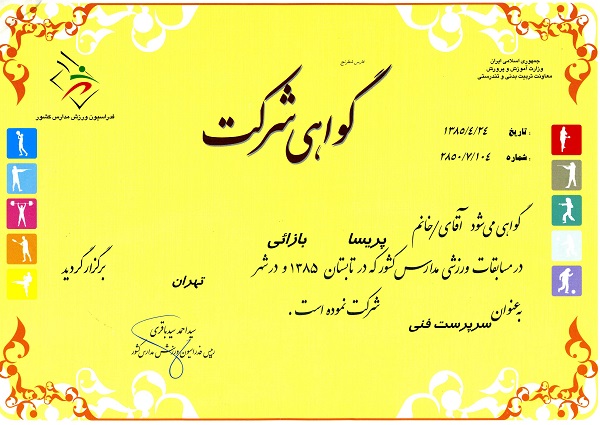 مدارس شطرنج
جمهوری اسلامی ایران
وزارت آموزش و پرورش
معاونت تربیت بدنی و تندرستی
فدراسیون ورزش مدارس کشور
گواهی شرکت
تاریخ : ۱۳۸۵/۴/۲۴
شماره : ۲۸۵۰/۷/۱۰۴
گواهی می شود آقای/خانم پریسا بازائی
در مسابقات ورزشی مدارس کشور که در تابستان ۱۳۸۵ و در شهر تهران برگزار گردید
به عنوان سرپرست فنی شرکت نموده است .
سید احمد سید باقری
رییس فدراسیون ورزش مدارس کشور